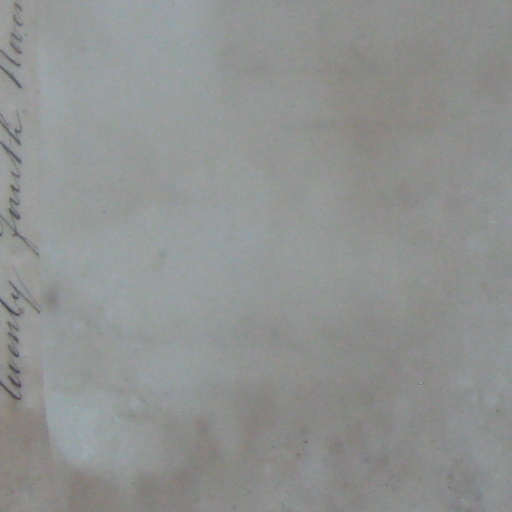 twenty fourth Nov